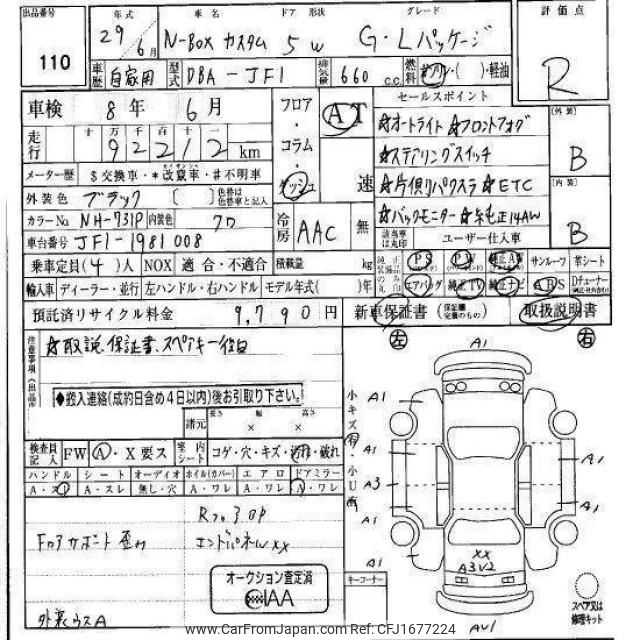 出品番号 年式 車名 ドア 形状 グレード 評価点
110 29 6月 N-BOX カスタム 5 W G・Lパッケージ R
車歴 自家用 型式 DBA-JF1 排気量 660 c.c. 燃料 ガソリン・( )・軽油
車検 8年 6月 フロア・コラム・ダッシュ AT 速 セールスポイント
走行 十万千百十一 92212 km
☆オートライト ☆フロントフォグ 外装 B
☆ステアリングスイッチ
メーター歴 $交換車・*改竄車・#不明車
外装色 ブラック ( ) 色替は色替車と記入
☆片側パワスラ ☆ETC 内装 B
カラーNo. NH-731P 内装色 クロ 冷房 AAC 無
☆バックモニター ☆純正14AW
車台番号 JF1-1981008
該当車は丸印 ユーザー仕入車
乗車定員(4)人 NOX 適合・不適合 積載量 kg
PS PW 純正AW サンルーフ 革シート
輸入車 ディーラー・並行 左ハンドル・右ハンドル モデル年式( )年
エアバッグ 純正TV 純正ナビ ABS
預託済リサイクル料金 9,790円 新車保証書 取扱説明書
左 右
注意事項 ☆取説、保証書、スペアキー後日
◆搬入連絡(成約日含め4日以内)後お引取り下さい。
諸元 長さ × 幅 × 高さ
検査員記入 FW A・X要ス 室内シート コゲ・穴・キズ・汚れ・破れ
ハンドル シート オーディオ ホイル(カバー) エアロ ドアミラー
A・スレ A・スレ 無し・穴 A・ワレ A・ワレ A・ワレ
小キズ有・小U有
A1
A1 A1
A1 A1
A3 A1
A1 A1
A1 A1
XX
A3V2
AU1
Rフロアヨリ
エンドパネルXX
Fロアサポート歪み
外装ウスA
オークション査定済
IAA
キーコーナー
スペア又は修理キット
www.CarFromJapan.com Ref: CFJ1677224